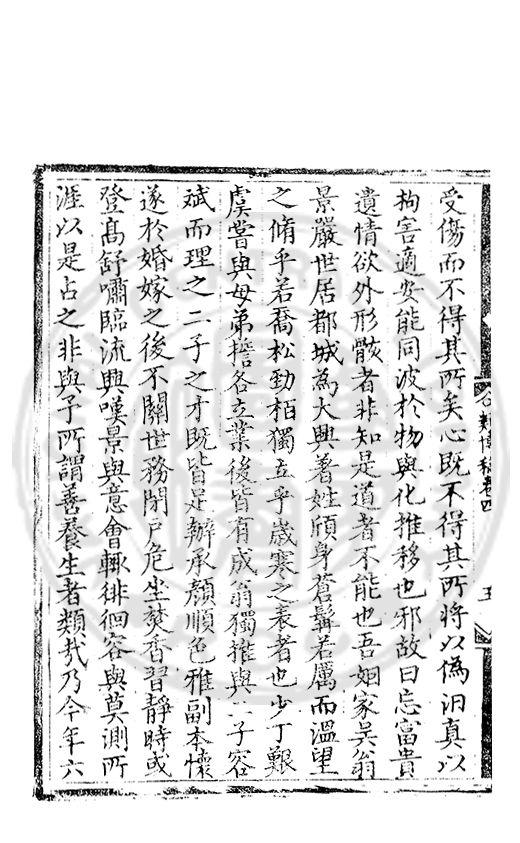 受傷而不得其所矣心既不得其所將以偽汨真以
拘害適安能同波於物與化推移也邪故曰忘富貴
遺情欲外形骸者非知是道者不能也吾姻家吳翁
景嚴世居都城為大興著姓頎身蒼髯若厲而溫望
之脩乎若喬松勁栢獨立乎歲寒之表者也少丁艱
虞嘗與母弟誓各立業後皆有成翁獨推與二子容
斌而理之二子之才既皆足辦承顏順色雅副本懷
遂於婚嫁之後不關世務閉戶危坐焚香習靜時或
登高舒嘯臨流興嘆景與意會輒徘徊容與莫測所
涯以是占之非與予所謂善養生者類㢤乃今年六
類博稿卷四
五